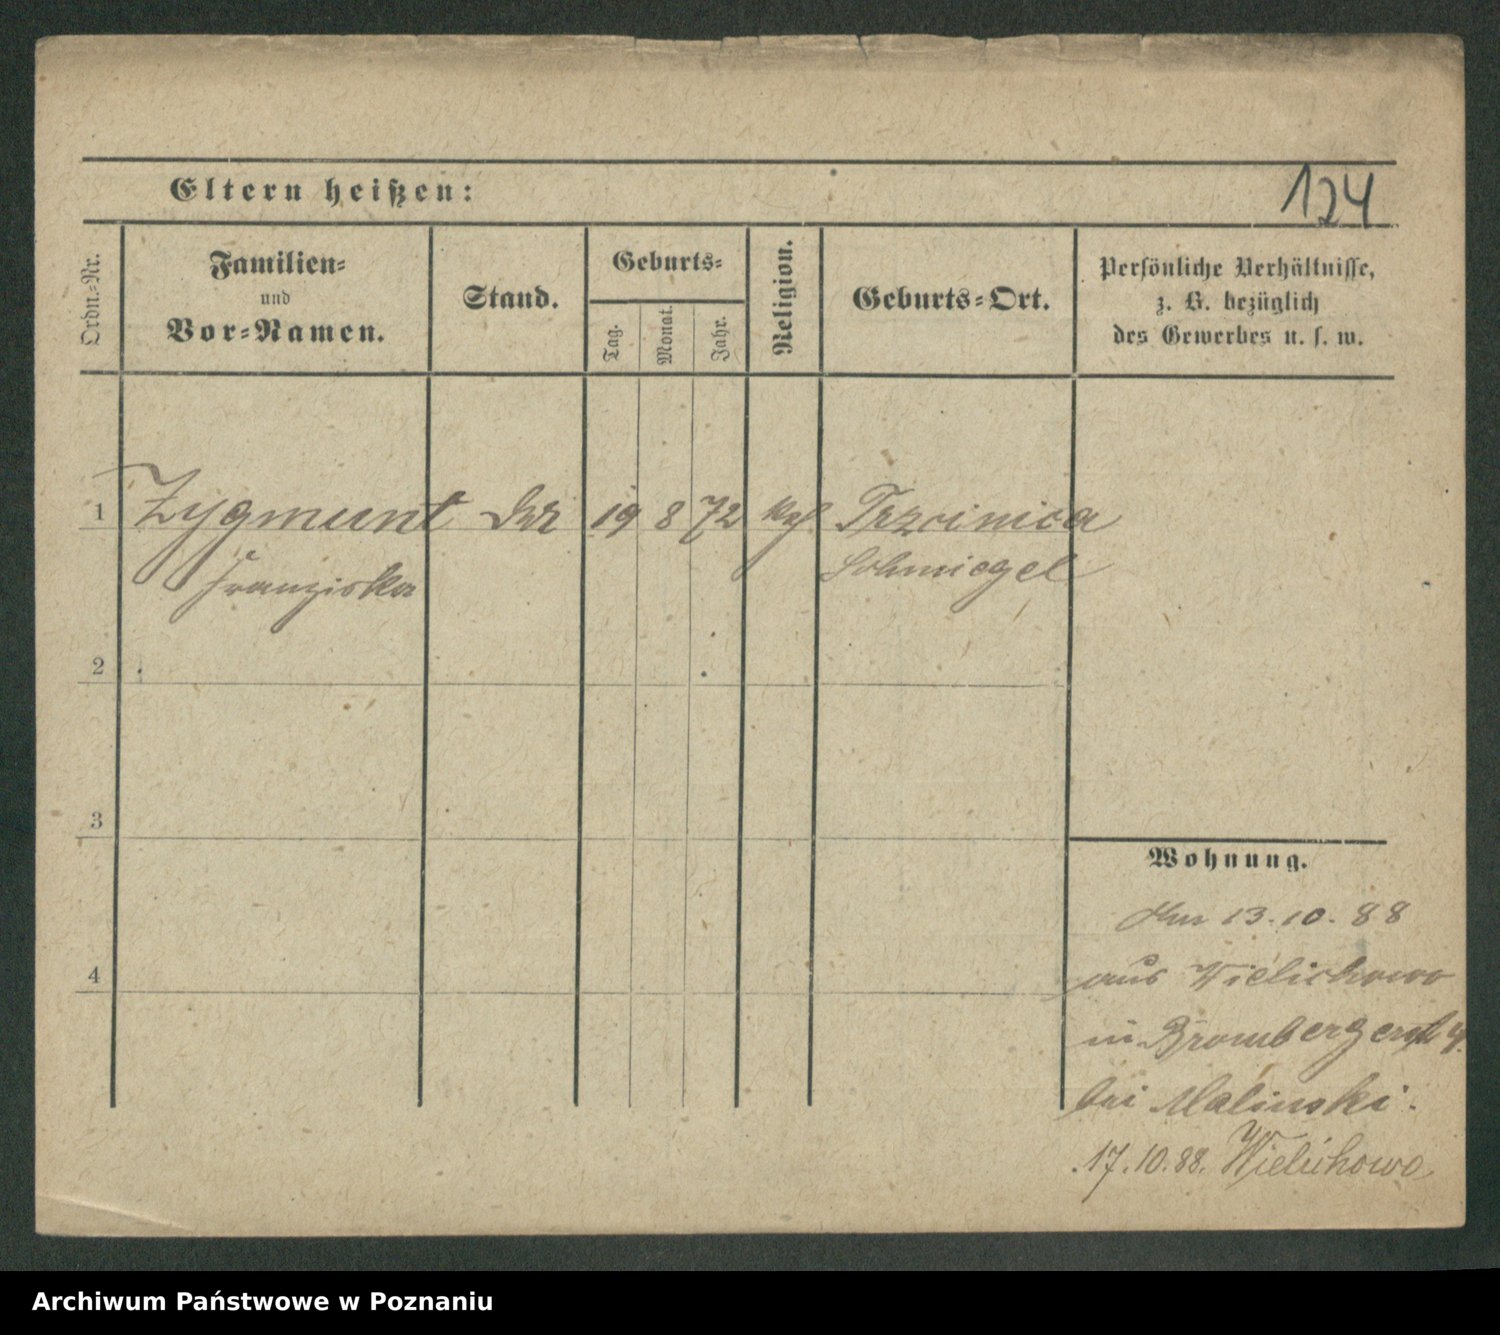 Eltern heißen:
124
Ordn.-Nr.
Familien-
und
Vor-Namen.
Stand.
Geburts-
Tag.
Monat.
Jahr.
Religion.
Geburts-Ort.
Persönliche Verhältnisse,
z. B. bezüglich
des Gewerbes u. s. w.
1 Zygmunt 19 8 72 Trzcinica
Franziska Schmiegel
2
3
4
Wohnung.
13. 10. 88
aus Wielichowo
in Bromberger 4.
bei Malinski.
17. 10. 88. Wielichowo
Archiwum Państwowe w Poznaniu